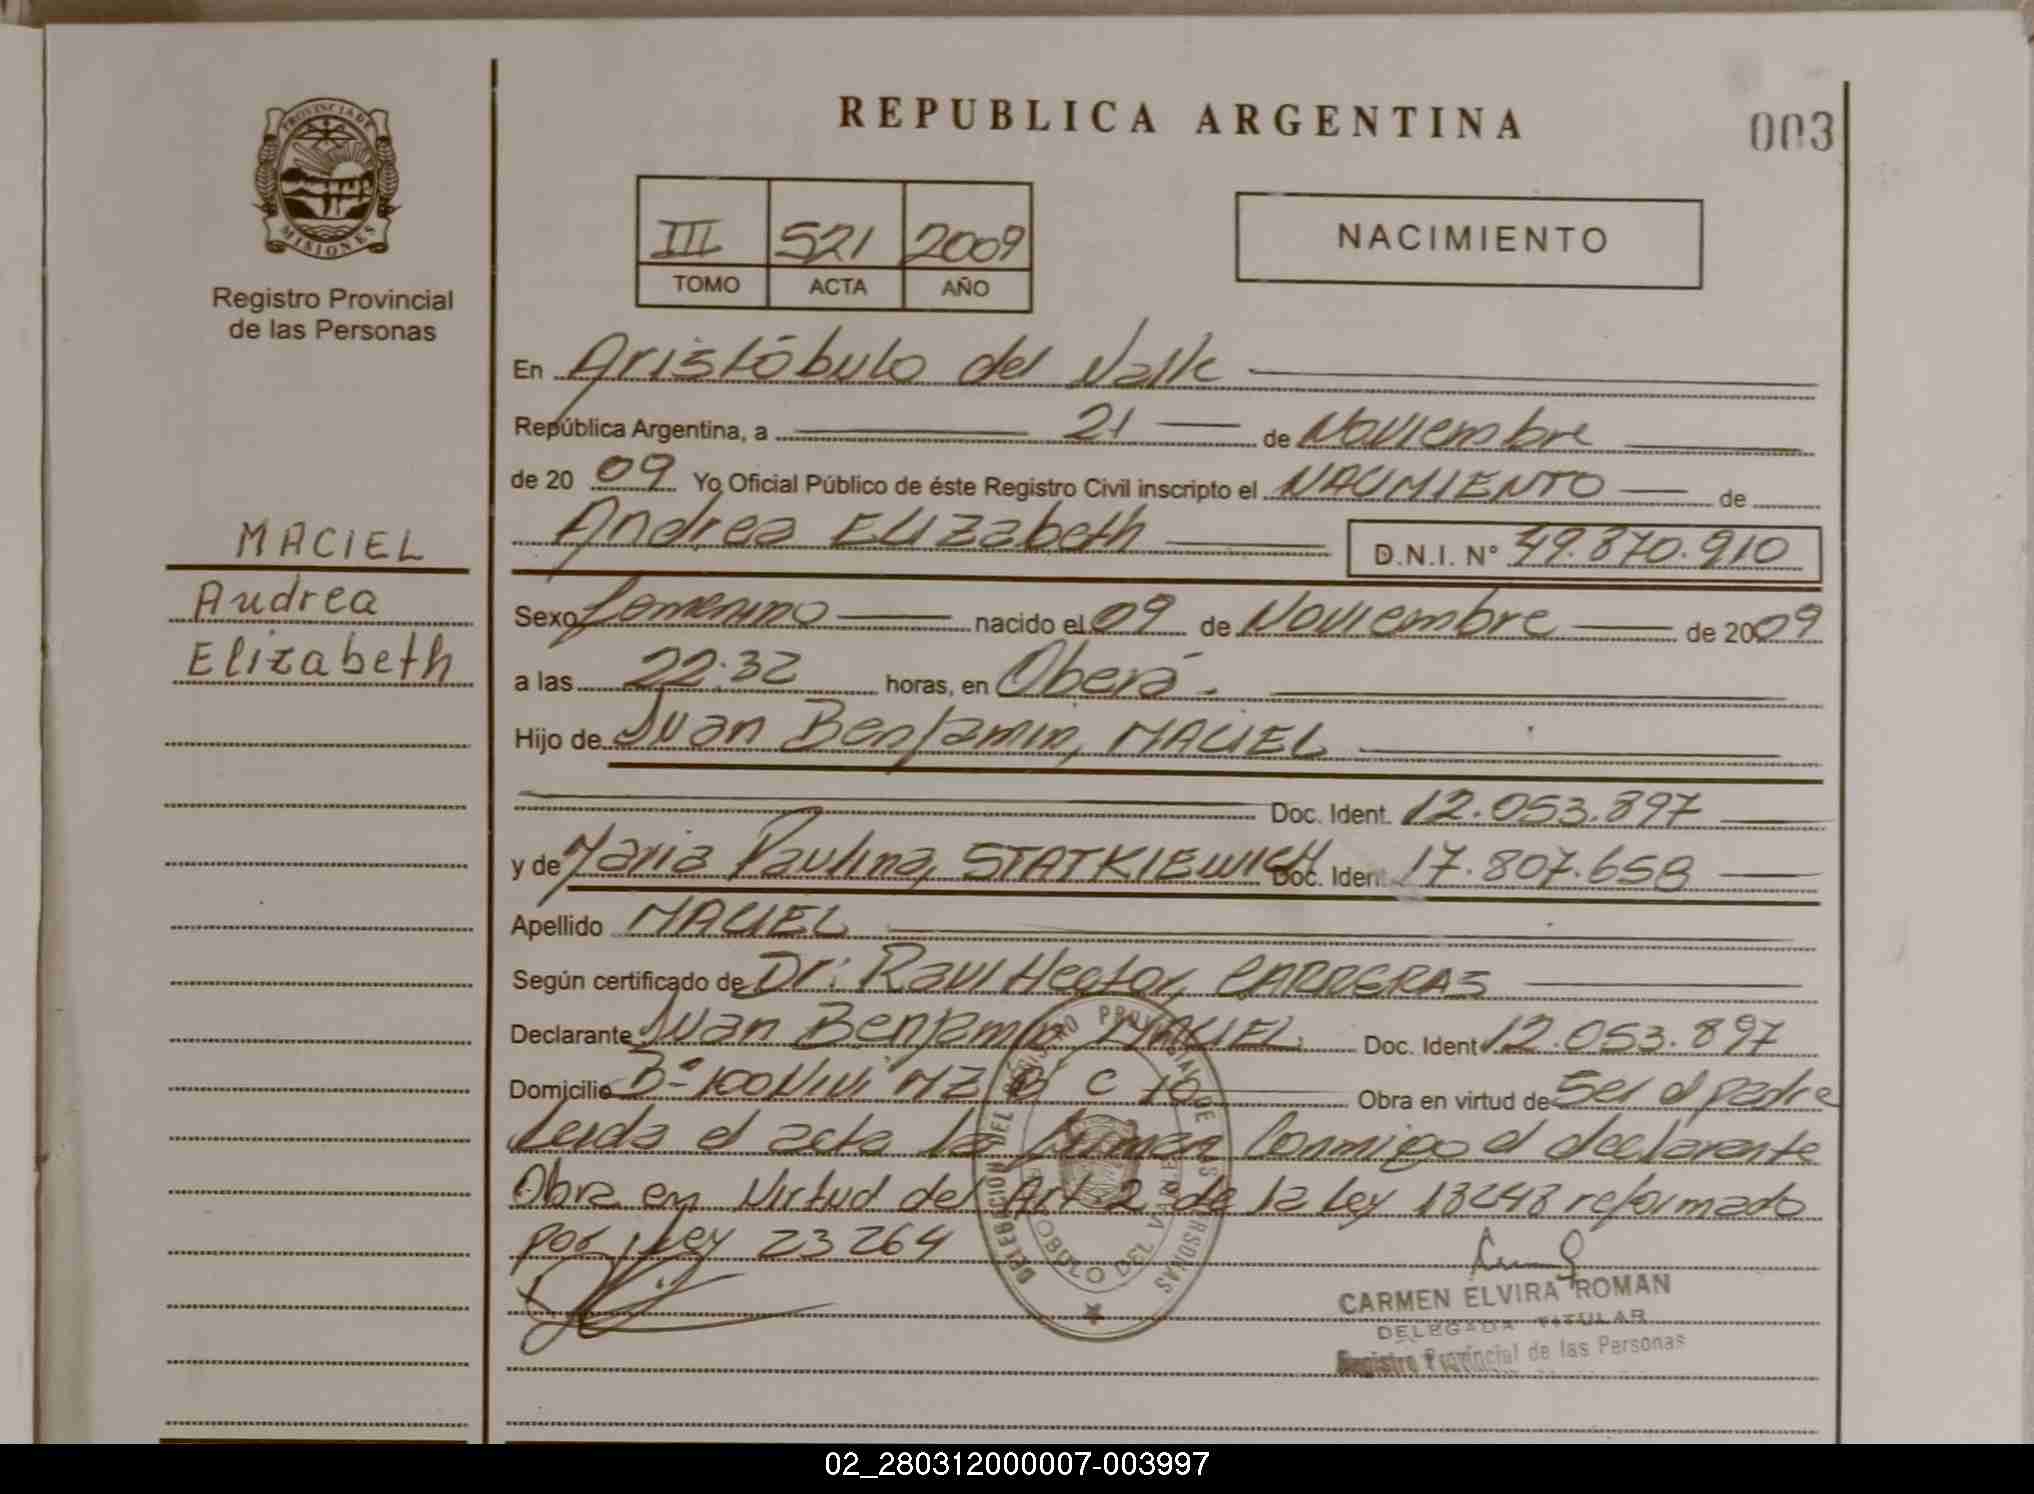 PROVINCIA DE
MISIONES
Registro Provincial
de las Personas
MACIEL
Andrea
Elizabeth
REPUBLICA ARGENTINA
003
III 521 2009
TOMO ACTA AÑO
NACIMIENTO
En Aristóbulo del Valle
República Argentina, a 21 de Noviembre
de 20 09 Yo Oficial Público de éste Registro Civil inscripto el NACIMIENTO de
Andrea ELIZabeth D.N.I. N° 49.870.910
Sexo femenino nacido el 09 de Noviembre de 2009
a las 22:32 horas, en Oberá.
Hijo de Juan Benjamin, MACIEL
Doc. Ident. 12.053.897
y de Maria Paulina, STATKIEWICH Doc. Ident. 17.807.658
Apellido MACIEL
Según certificado de Dr: Raul Hector, CARRERAS
Declarante Juan Benjamin MACIEL. Doc. Ident 12.053.897
Domicilio B° 100 Viv MZ B C 10 Obra en virtud de Ser el padre
Leida el acta la firman Conmigo el declarante
Obra en Virtud del Art 2 de la Ley 18248 reformado
por Ley 23264
DELEGACION DEL REGISTRO PROVINCIAL DE LAS PERSONAS
ARISTOBULO DEL VALLE
CARMEN ELVIRA ROMAN
DELEGADA TITULAR
Registro Provincial de las Personas
02_280312000007-003997